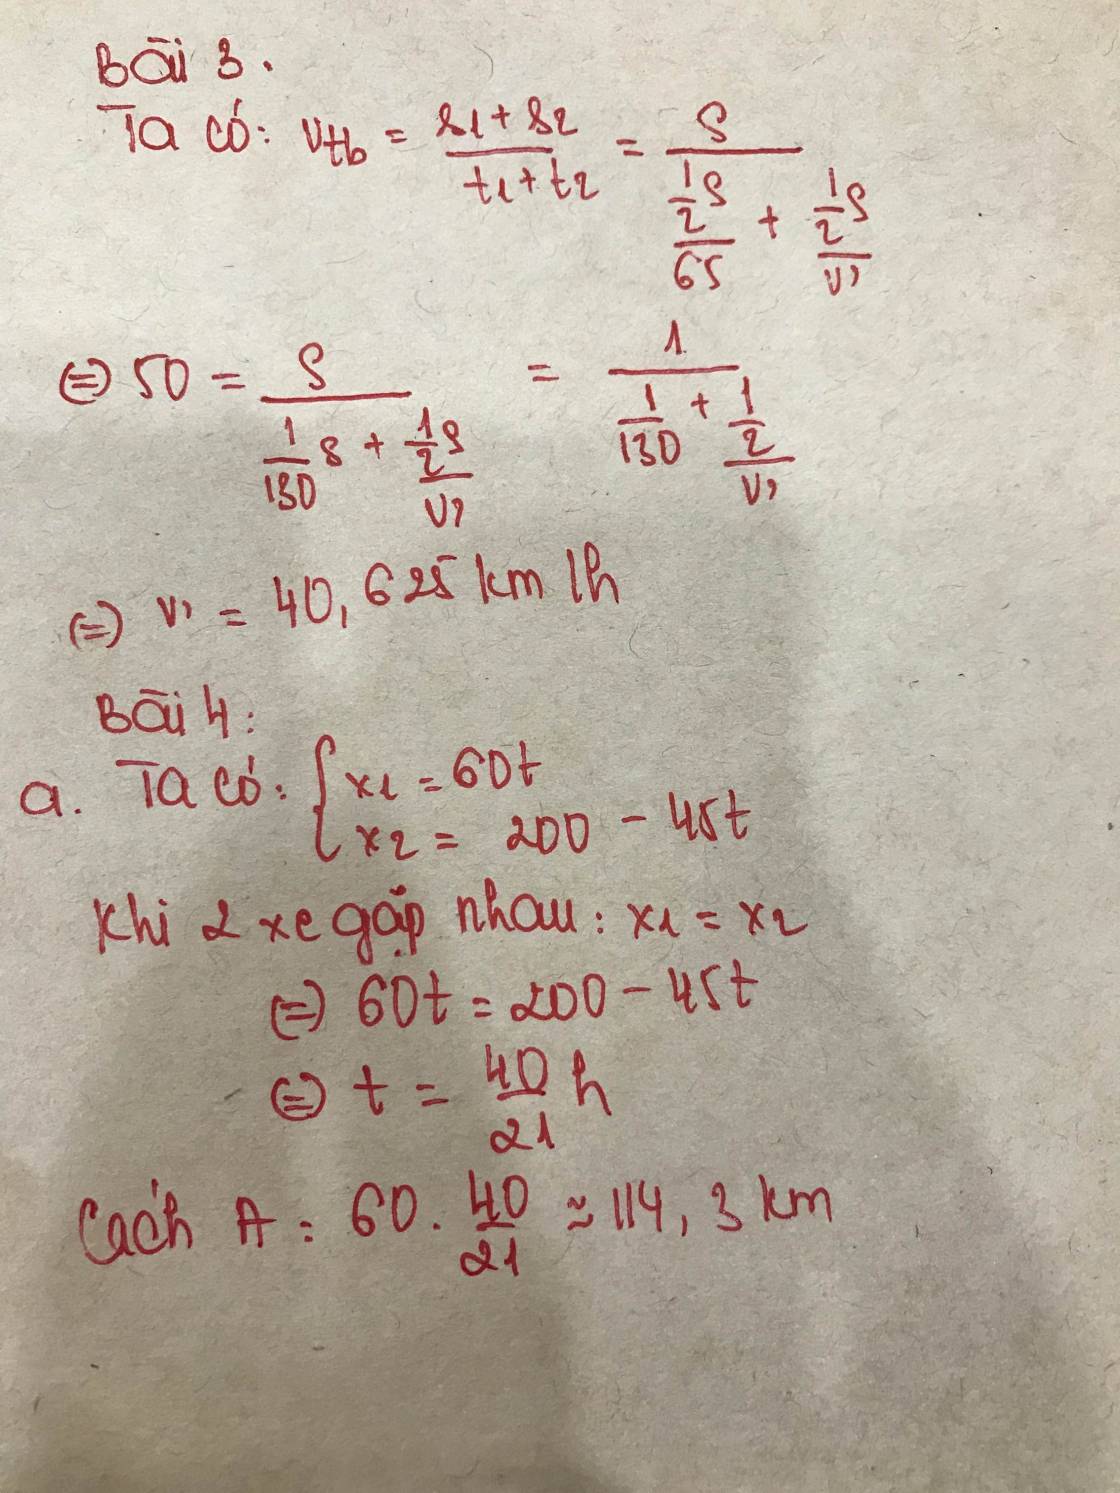 Bài 3.
Ta có: vtb = s1 + s2 / t1 + t2 = S / (1/2 S / 65 + 1/2 S / v')
(=) 50 = S / (1/130 s + 1/2 S / v') = 1 / (1/130 + 1/2 / v')
(=) v' = 40,625 km/h
Bài 4:
a. Ta có: { x1 = 60t
x2 = 200 - 45t
Khi 2 xe gặp nhau: x1 = x2
(=) 60t = 200 - 45t
(=) t = 40/21 h
Cách A : 60 . 40/21 ≈ 114,3 km